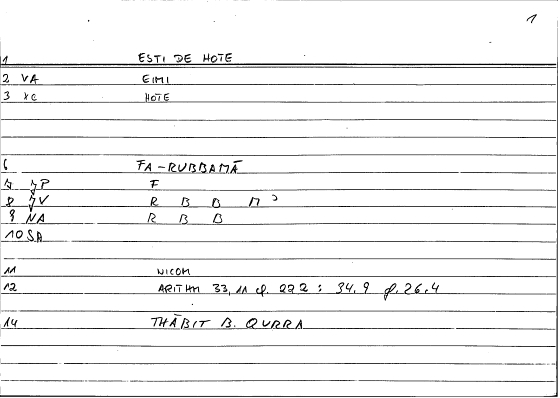 1
1 ESTI DE HOTE
2 VA EIMI
3 XC HOTE
6 FA-RUBBAMĀ
7 F
8 R B B M ɔ
9 NA R B B
10 SA
11 NICOM
12 ARITHM 33,11 : 34,9
14 THĀBIT B. QURRA